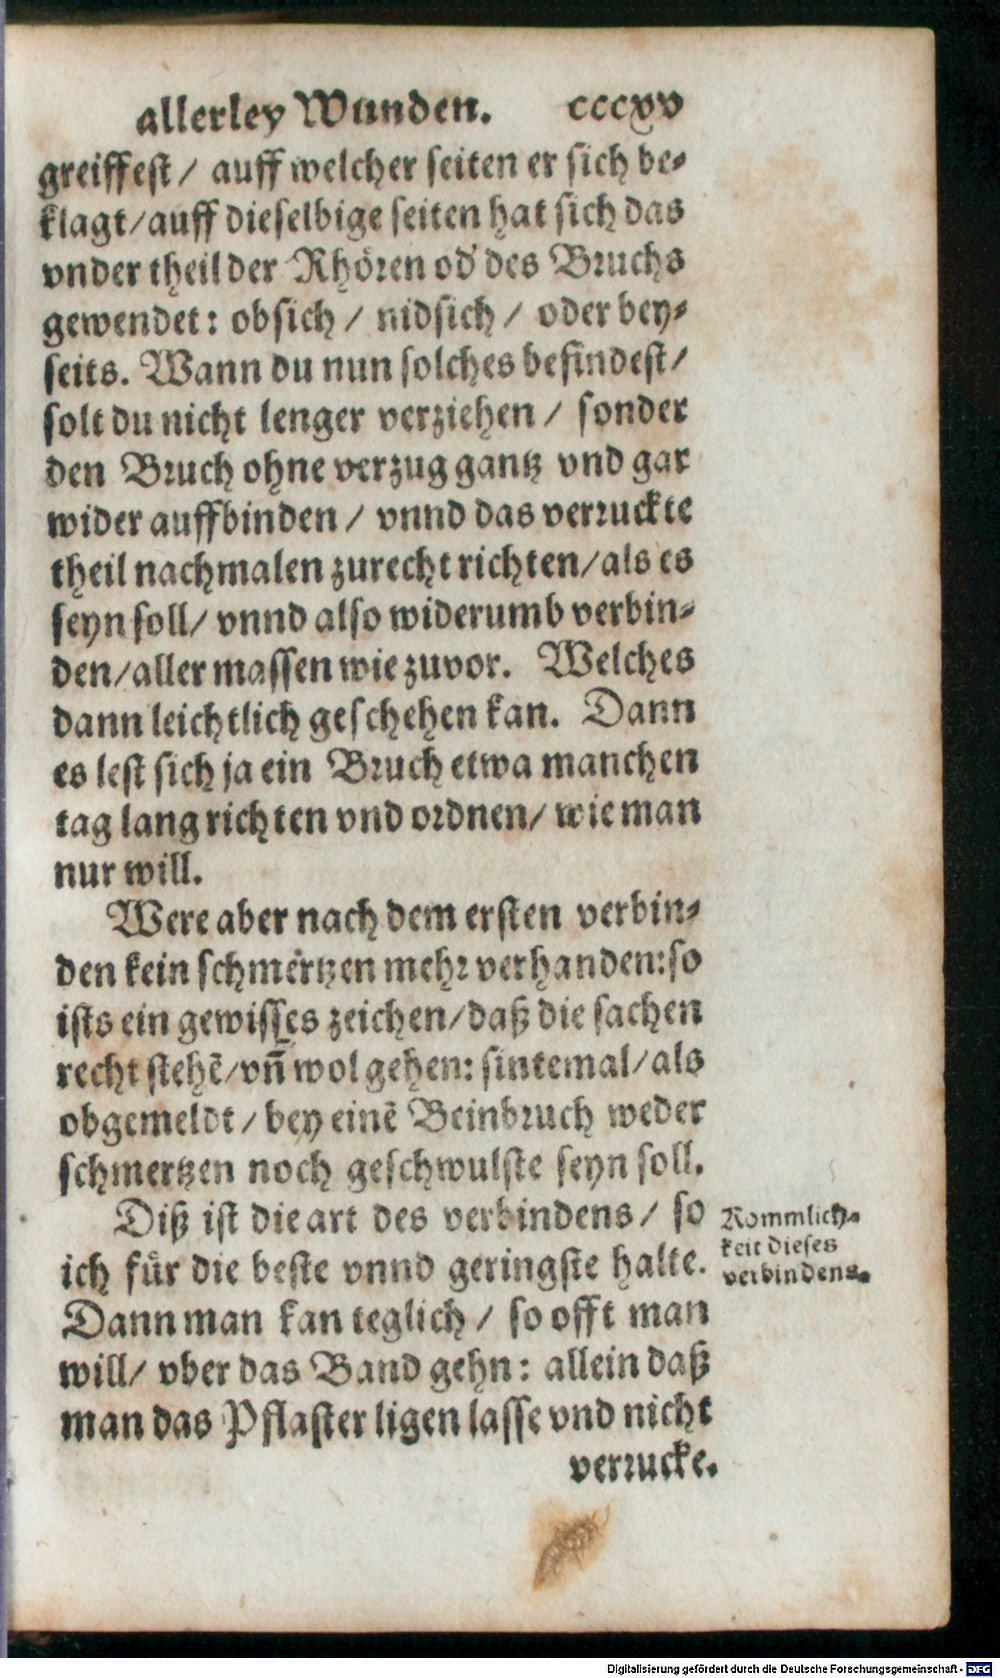 allerley Wunden. cccxv
greiffest / auff welcher seiten er sich be-
klagt/auff dieselbige seiten hat sich das
vnder theil der Rhören od' des Bruchs
gewendet: obsich / nidsich / oder bey-
seits. Wann du nun solches befindest/
solt du nicht lenger verziehen / sonder
den Bruch ohne verzug gantz vnd gar
wider auffbinden / vnnd das verruckte
theil nachmalen zurecht richten/als es
seyn soll/ vnnd also widerumb verbin-
den/aller massen wie zuvor. Welches
dann leichtlich geschehen kan. Dann
es lest sich ja ein Bruch etwa manchen
tag lang richten vnd ordnen/ wie man
nur will.
Were aber nach dem ersten verbin-
den kein schmertzen mehr verhanden:so
ists ein gewisses zeichen/daß die sachen
recht stehē/vn̄ wol gehen: sintemal/als
obgemeldt / bey einē Beinbruch weder
schmertzen noch geschwulste seyn soll.
Diß ist die art des verbindens / so
ich für die beste vnnd geringste halte.
Dann man kan teglich / so offt man
will/ vber das Band gehn: allein daß
man das Pflaster ligen lasse vnd nicht
verrucke.
Kommlich-
keit dieses
verbindens.
Digitalisierung gefördert durch die Deutsche Forschungsgemeinschaft - DFG